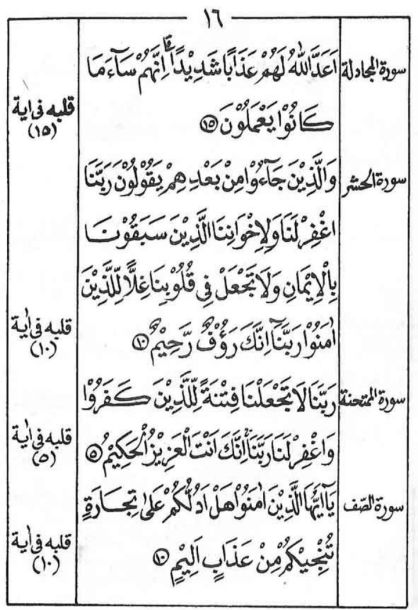 ١٦
سورة المجادلة
اَعَدَّاللهُ لَهُمْ عَذَابًاشَدِيْدًاۗ اِنَّهُمْ سَآءَ مَا
كَانُوْا يَعْمَلُوْنَ ١٥
قلبه فى اية
(١٥)
سورة الحشر
وَالَّذِيْنَ جَآءُوْامِنْ بَعْدِهِمْ يَقُوْلُوْنَ رَبَّنَا
اغْفِرْلَنَا وَلِاِخْوَانِنَا الَّذِيْنَ سَبَقُوْنَا
بِالْاِيْمَانِ وَلَا تَجْعَلْ فِى قُلُوْبِنَا غِلًّا لِّلَّذِيْنَ
اٰمَنُوْا رَبَّنَآ اِنَّكَ رَؤُفٌ رَّحِيْمٌ ١٠
قلبه فى اية
(١٠)
سورة الممتحنة
رَبَّنَا لَا تَجْعَلْنَا فِتْنَةً لِّلَّذِيْنَ كَفَرُوْا
وَاغْفِرْ لَنَا رَبَّنَا اِنَّكَ اَنْتَ الْعَزِيْزُ الْحَكِيْمُ ٥
قلبه فى اية
(٥)
سورة الصّف
يَآاَيُّهَا الَّذِيْنَ اٰمَنُوْا هَلْ اَدُلُّكُمْ عَلٰى تِجَارَةٍ
تُنْجِيْكُمْ مِنْ عَذَابٍ اَلِيْمٍ ١٠
قلبه فى اية
(١٠)